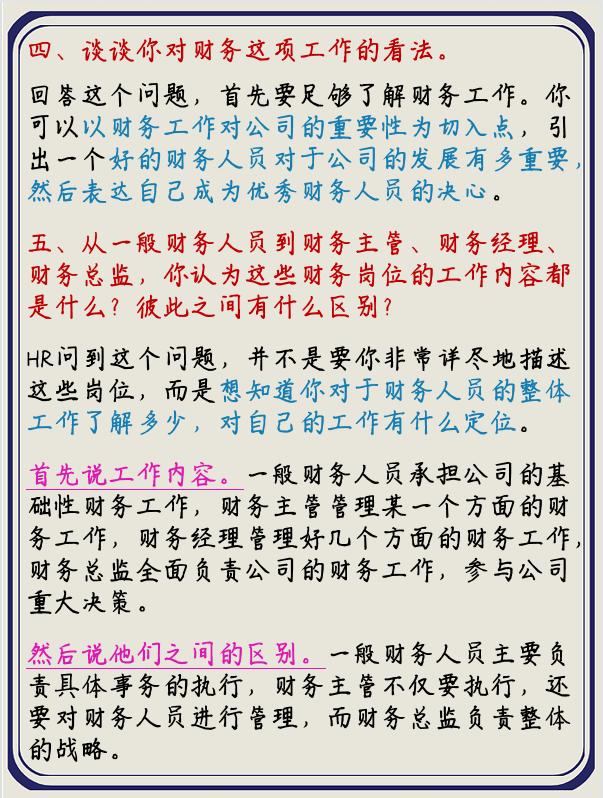 四、谈谈你对财务这项工作的看法。
回答这个问题，首先要足够了解财务工作。你
可以以财务工作对公司的重要性为切入点，引
出一个好的财务人员对于公司的发展有多重要，
然后表达自己成为优秀财务人员的决心。
五、从一般财务人员到财务主管、财务经理、
财务总监，你认为这些财务岗位的工作内容都
是什么？彼此之间有什么区别？
HR问到这个问题，并不是要你非常详尽地描述
这些岗位，而是想知道你对于财务人员的整体
工作了解多少，对自己的工作有什么定位。
首先说工作内容。一般财务人员承担公司的基
础性财务工作，财务主管管理某一个方面的财
务工作，财务经理管理好几个方面的财务工作，
财务总监全面负责公司的财务工作，参与公司
重大决策。
然后说他们之间的区别。一般财务人员主要负
责具体事务的执行，财务主管不仅要执行，还
要对财务人员进行管理，而财务总监负责整体
的战略。